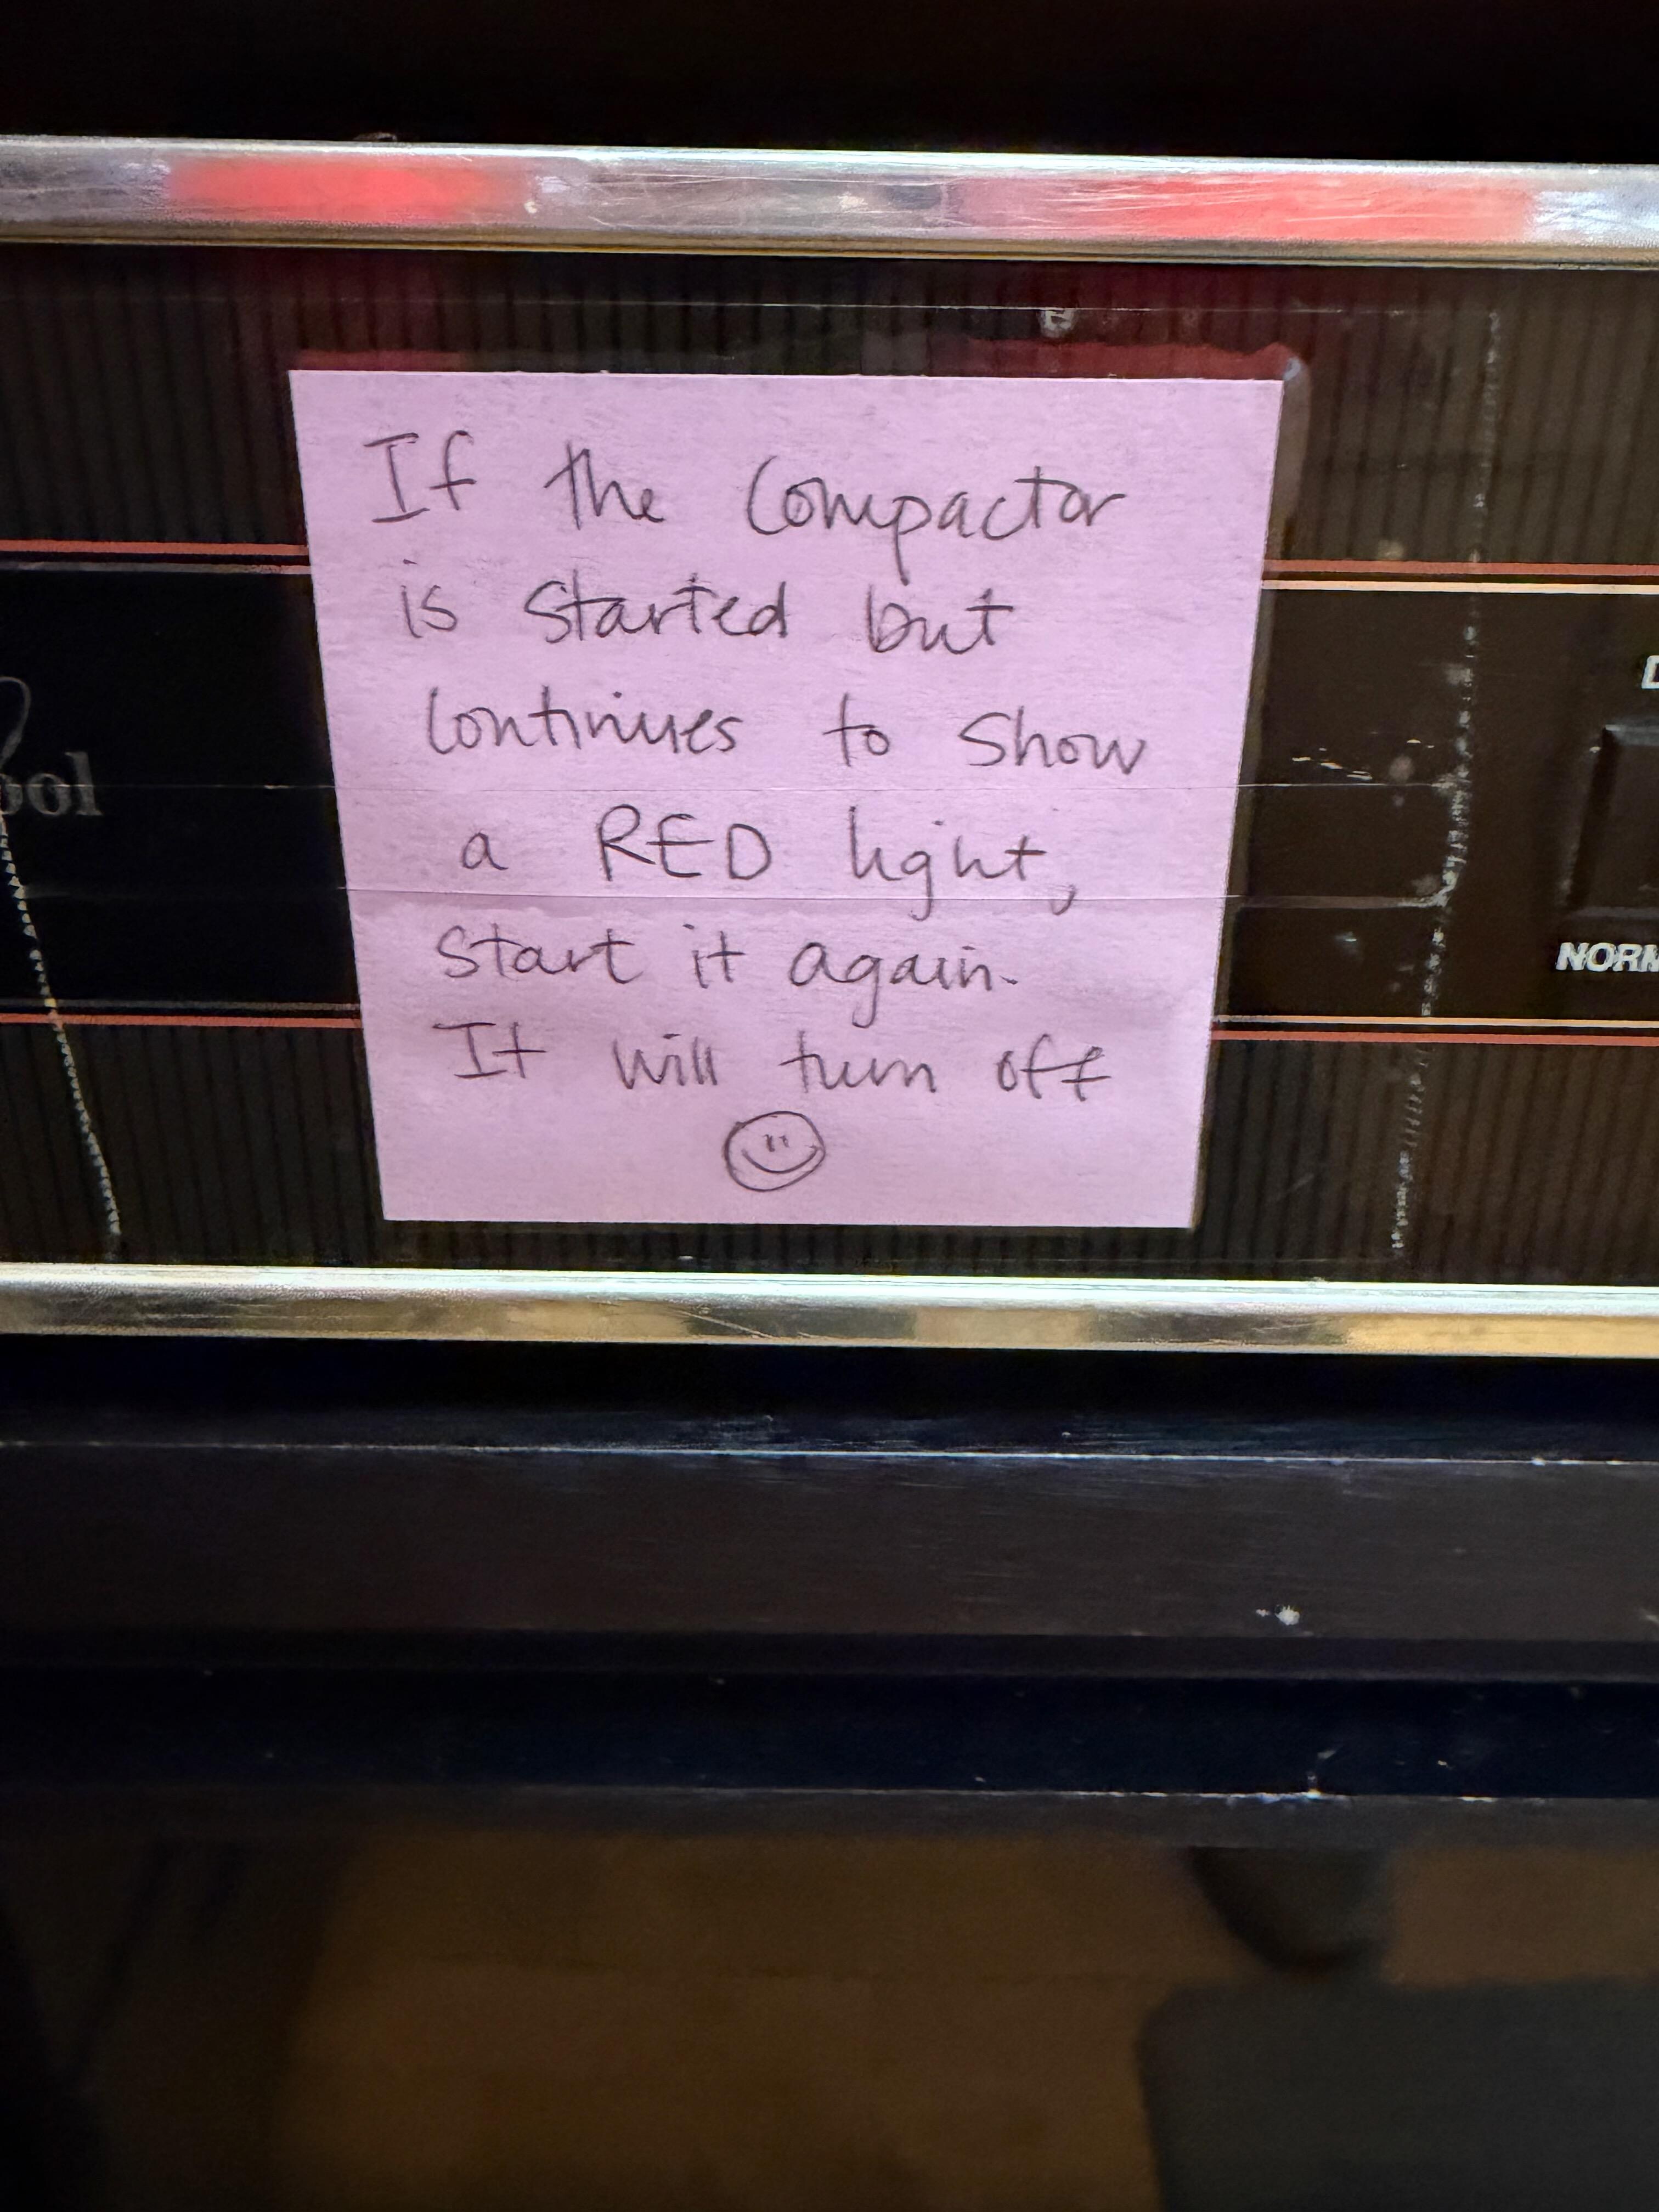 If the Compactor
is started but
Continues to Show
a RED light,
Start it again.
It will turn off